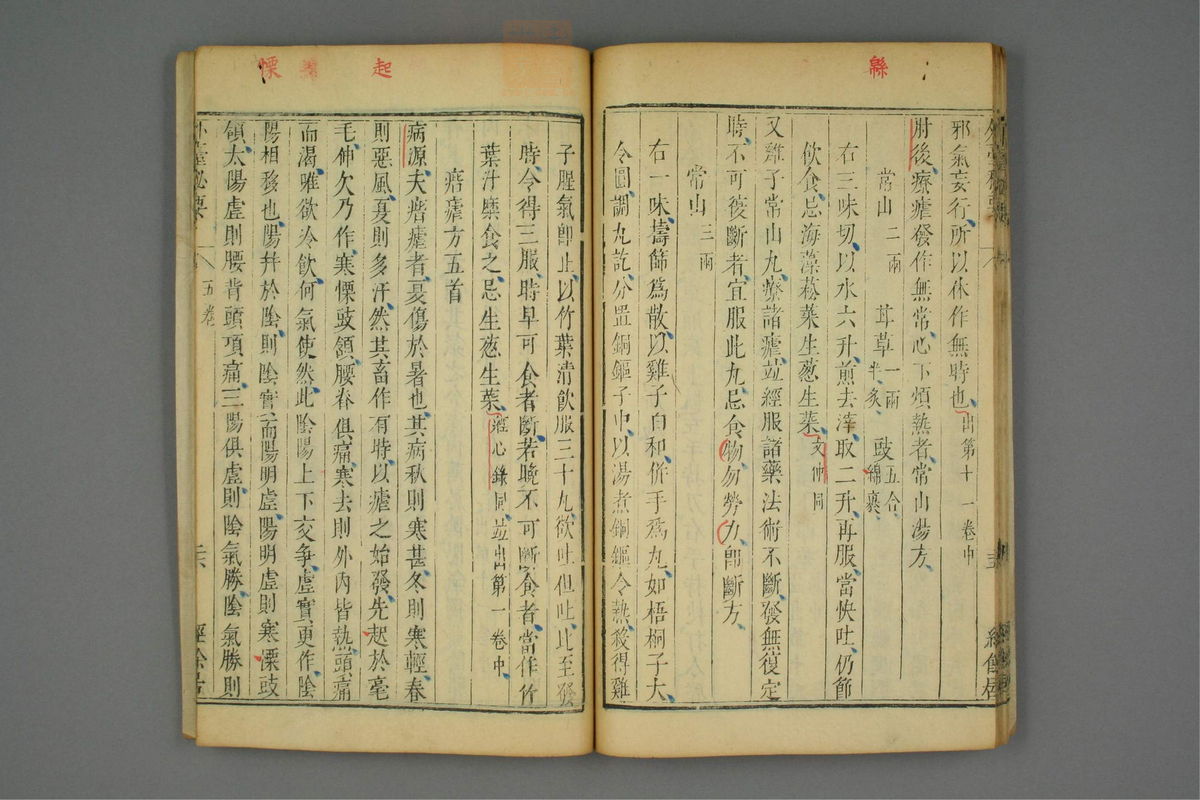 緜
邪氣妄行所以休作無時也出第十一卷中
肘後療瘧發作無常心下煩熱者常山湯方
常山二兩 甘草一兩半炙 豉五合綿裹
右三味切以水六升煎去滓取二升再服當快吐仍節
飲食忌海藻菘菜生葱生菜文仲同
又雞子常山丸療諸瘧竝經服諸藥法術不斷發無復定
時不可後斷者宜服此丸忌食物勿勞力卽斷方
常山三兩
右一味擣篩爲散以雞子白和併手爲丸如梧桐子大
令圓調丸訖分置銅鏂子中以湯煮銅鏂令熱殺得雞
起 慄
子腥氣卽止以竹葉清飲服三十丸欲吐但吐比至發
時令得三服時早可食者斷若晚不可斷食者當作竹
葉汁糜食之忌生葱生菜必心錄同竝出第一卷中
痎瘧方五首
病源夫痎瘧者夏傷於暑也其病秋則寒甚冬則寒輕春
則惡風夏則多汗然其畜作有時以瘧之始發先起於毫
毛伸欠乃作寒慄豉頷腰脊俱痛寒去則外內皆熱頭痛
而渴唯欲冷飲何氣使然此陰陽上下交爭虛實更作陰
陽相移也陽幷於陰則陰實而陽明虛陽明虛則寒慄豉
頷太陽虛則腰背頭項痛三陽俱虛則陰氣勝陰氣勝則
外臺祕要 五卷 二六 經餘居